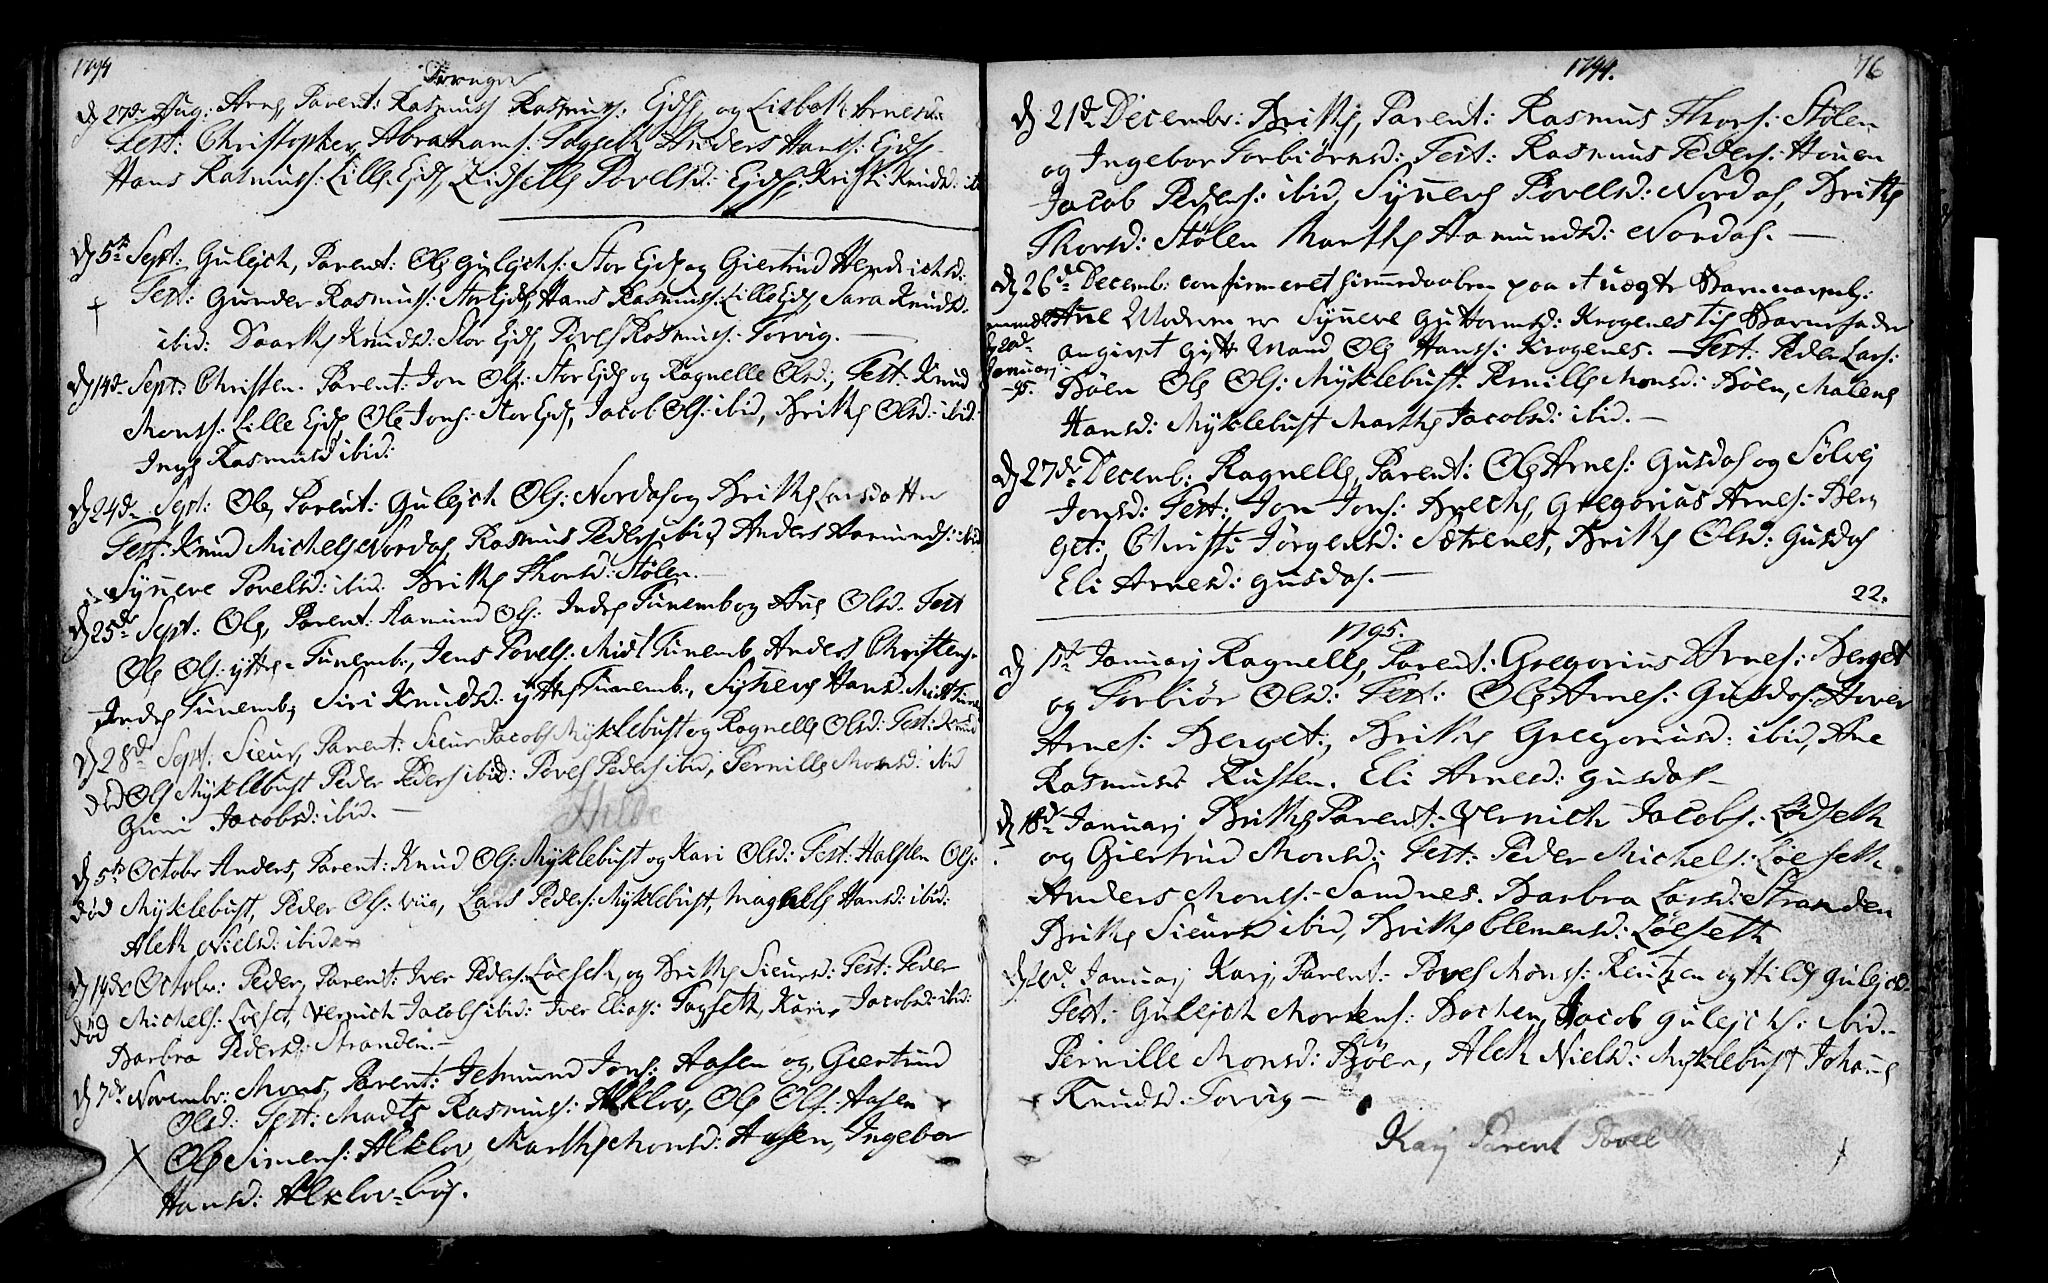 1794
d 27de Aug: Arne, Parent: Rasmus Rasmuss: Ejde, og Lisbeth Arnesd:
Test: Christopher Abrahams: Anders Hanss: Ejde
Hans Rasmuss: Lille Ejde, Povelsd: Ejde, Kristi Knudsd: ib
d 5te Sept: Gulejch, Parent: Ole Gulejchs: Stor Ejde og Giertrud Hendrichsd:
Test: Gunder Rasmuss: Stor Ejde, Hans Rasmuss: Lille Ejde Sara Knudsd.
ibid: Knudsd: Stor Ejde, Povel Rasmuss: Torvig. —
d 14de Sept: Christen. Parent: Jon Ols: Stor Ejde og Ragnelle Olsd:, Test: Knud
Monss: Lille Ejde, Ole Jons: Stor Ejde, Jacob Ols: ibid, Brithe Olsd: ibid:
Inge Rasmusd ibid:
d 24de Sept: Ole, Parent: Gulejch Ols: Nordas og Brithe Larsdatter
Test: Knud Michels Nordas, Rasmus Peders ibid, Anders Aamunds: ibid
Synneve Povelsd: ibid. Brithe Thorsd: Stølen. —
d 25de Sept: Ole, Parent: Aamund Ols: Indre Tunemb og Ane Olsd. Test
Ole Ols: ytre Tunemb:, Jens Povels: Mist Tunemb, Anders Christens:
Indre Tunemb; Siri Knudsd: ytre Tunemb:, Synneve Hansd: Mist Tune
d 28de Sept: Sieur, Parent: Sieur Jacobs Myklebust og Ragnelle Olsd: Test: Knud
død Ols Myklebust Peder Peders ibid: Povel Peders ibid, Pernille Monsd: ibid
Guni Jacobsd: ibid. —
Hilde
d 5te Octobr Anders, Parent: Knud Ols: Myklebust og Kari Olsd: Test: Halsten Ols:
død Myklebust, Peder Ols: Viig, Lars Peders: Myklebust, Magnelle Hansd: ibid:
Aleth Nielsd: ibid
d 14de Octobr: Peder, Parent: Iver Peders: Løeseth, og Brithe Sieursd: Test: Peder
død Michels: Løeset, Vernich Jacobs ibid: Iver Elias: Kari Jacobsd: ibid:
Barbra Pedersd: Stranden. —
d 7de Novembr: Mons, Parent: Jetmund Jons: Aasen og Giertrud
Olsd: Test: Madts Rasmuss: Alklov, Ole Ols: Aasen
Ole Simens: Alklov, Marthe Monsd: Aasen, Ingebor
Hansd: Alklov-bøe.
1794. 76
d 21de Decembr: Brithe, Parent: Rasmus Thors: Stølen
og Ingebor Torbiørnsd: Test: Rasmus Peders: Houen
Jacob Peders: ibid, Synneve Povelsd: Nordas, Brithe
Thorsd: Stølen Marthe Aamundsd: Nordas. —
d 26de Decemb: confirmeret hiemmedaaben paa et uægte Barn navnl:
Ane Moderen er Synneve Guttormsd: Krogenes til Barnefader
angivet gift Mand Ole Hanss: Krogenes. — Test: Peder Lars:
Januarj 95.
Bøen Ole Ols: Myklebust Pernille Monsd: Bøen, Malene
Hansd: Myklebust Marthe Jacobsd: ibid. —
d 27de Decemb: Ragnelle, Parent: Ole Arnes: Gusdas og Sølvej
Jonsd: Test: Jon Jons: Breche, Gregorius Arnes: Ber
get:, Christi Jørgensd: Sætrenes, Brithe Olsd: Gusdas
Eli Arnesd: Gusdas. —
22.
1795.
d 1ste Januarj Ragnelle, Parent: Gregorius Arnes: Berget
og Torbiør Olsd: Test: Ole Arnes: Gusdas: Hover
Arnes: Berget:, Brithe Gregoriusd: ibid, Ane
Rasmusd Rusten. Eli Arnesd: Gusdas —
d 18de Januarj Brithe Parent: Vernich Jacobs: Lødseth
og Giertrud Monsd: Test: Peder Michels: Løeseth
Anders Monss: Sandnes. Barbra Larsd: Stranden
Brithe Sieursd ibid, Brithe Clemensd: Løeseth
Januarj Karj Parent: Povel Monss: Reitzen og Hilde Gulejchsd:
Test: Gulejch Mortens: Bochen, Jacob Gulejchs: ibid.
Pernille Monsd: Bøen, Aleth Nielsd: Myklebust Johane
Knudsd: Torvig —
Karj Parent Povel